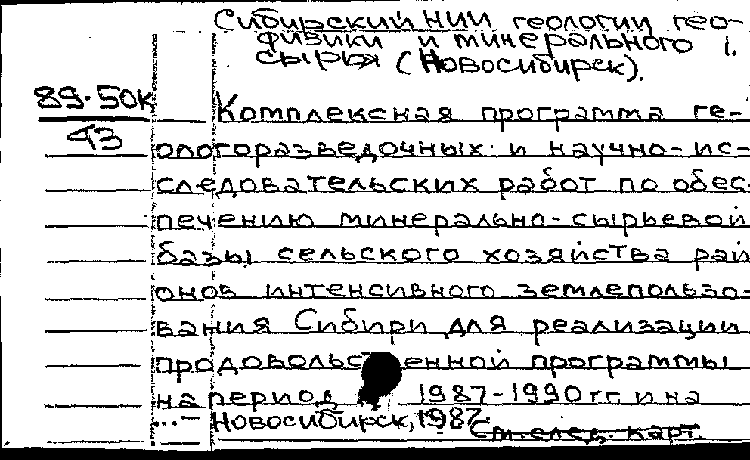 Сибирский НИИ геологии гео-
физики и минерального
сырья (Новосибирск).
89-50к
43
Комплексная программа ге-
ологоразведочных и научно-ис-
следовательских работ по обес-
печению минерально-сырьевой
базы сельского хозяйства рай
онов интенсивного землепользо-
вания Сибири для реализации
продовольственной программы
на период 1987-1990 гг. и на
...- Новосибирск, 1987
См. след. карт.